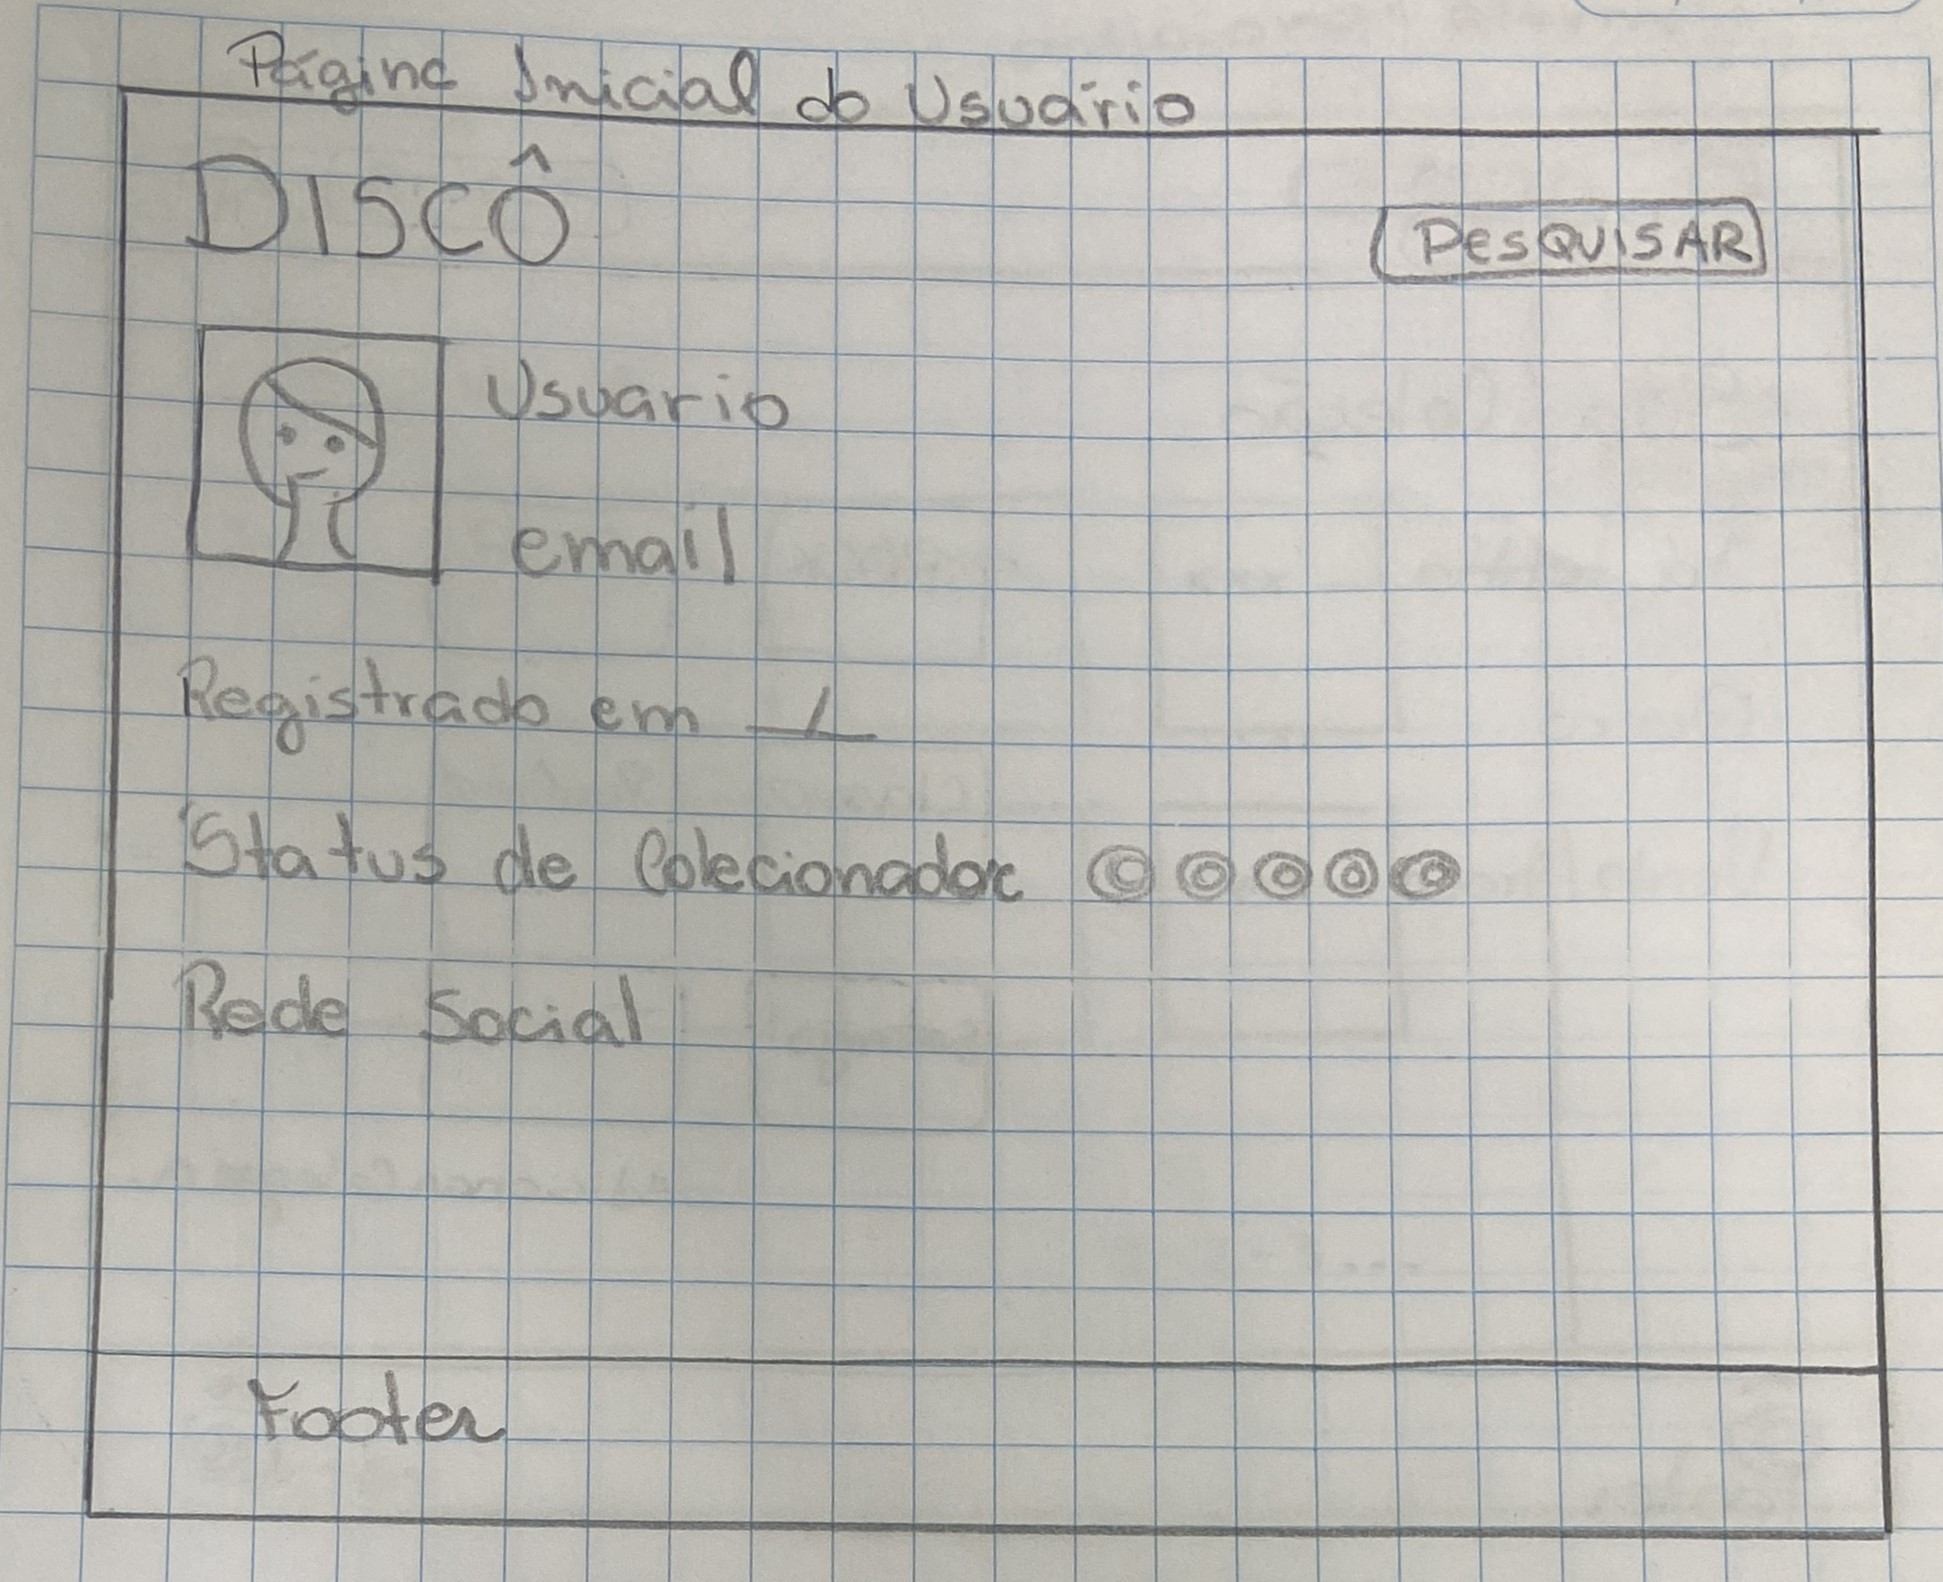 Página Inicial do Usuário
DISCÔ
PesQUISAR
Usuario
email
Registrado em _/_
Status de Colecionador
Rede Social
Footer